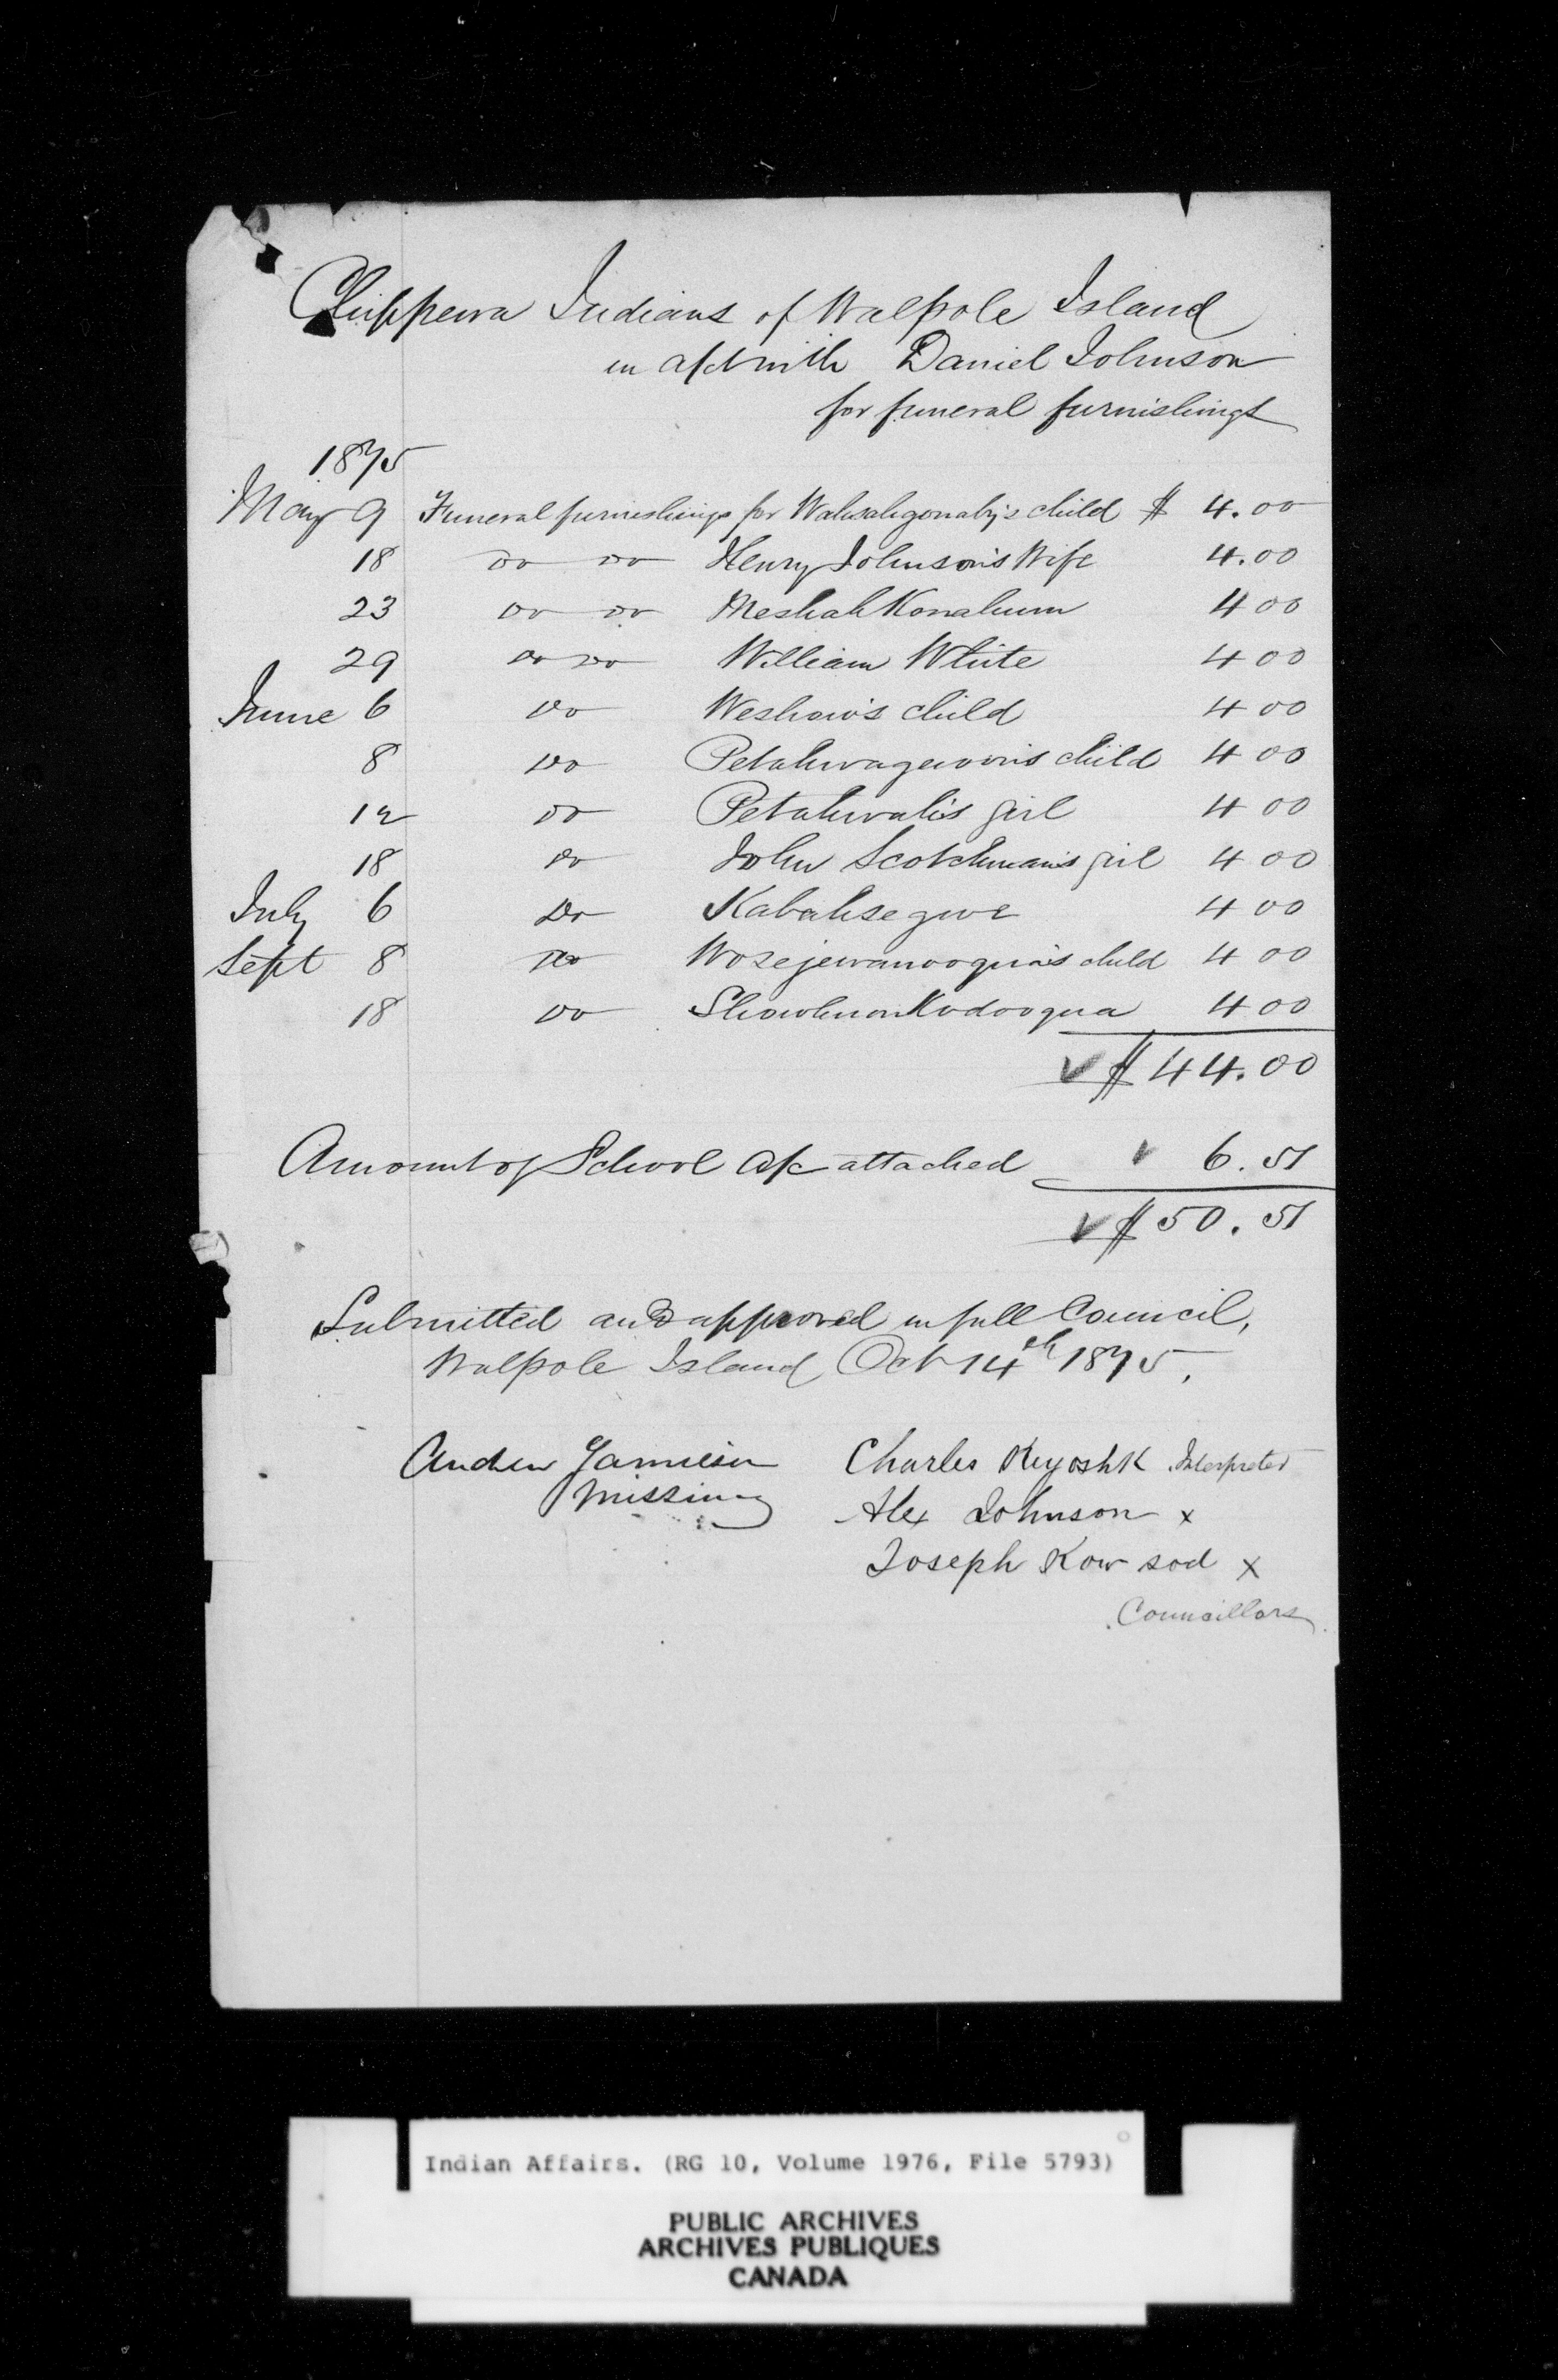 Chippewa Indians of Walpole Island
in a/ct with Daniel Johnson
for funeral furnishings
1875
May 9 Funeral furnishings for Wahsahgonaby's child $ 4.00
18 Do Do Henry Johnson's Wife 4.00
23 Do Do Meshah Konahum 4 00
29 Do Do William White 4 00
June 6 Do Weshow's child 4 00
8 Do Petahwagewon's child 4 00
12 Do Petahwah's girl 4 00
18 Do John Scotchman's girl 4 00
July 6 Do Kabahsegwe 4 00
Sept 8 Do Wosejewanooqua's child 4 00
18 Do 4 00
$ 44.00
Amount of School a/c attached 6.51
$ 50.51
Submitted and approved in full Council,
Walpole Island Oct 14th 1875.
Andrew Jamieson Charles Keyoshk Interpreter
Missiony Alex Johnson x
Joseph Kow sod x
Councillors
Indian Affairs. (RG 10, Volume 1976, File 5793)
PUBLIC ARCHIVES
ARCHIVES PUBLIQUES
CANADA